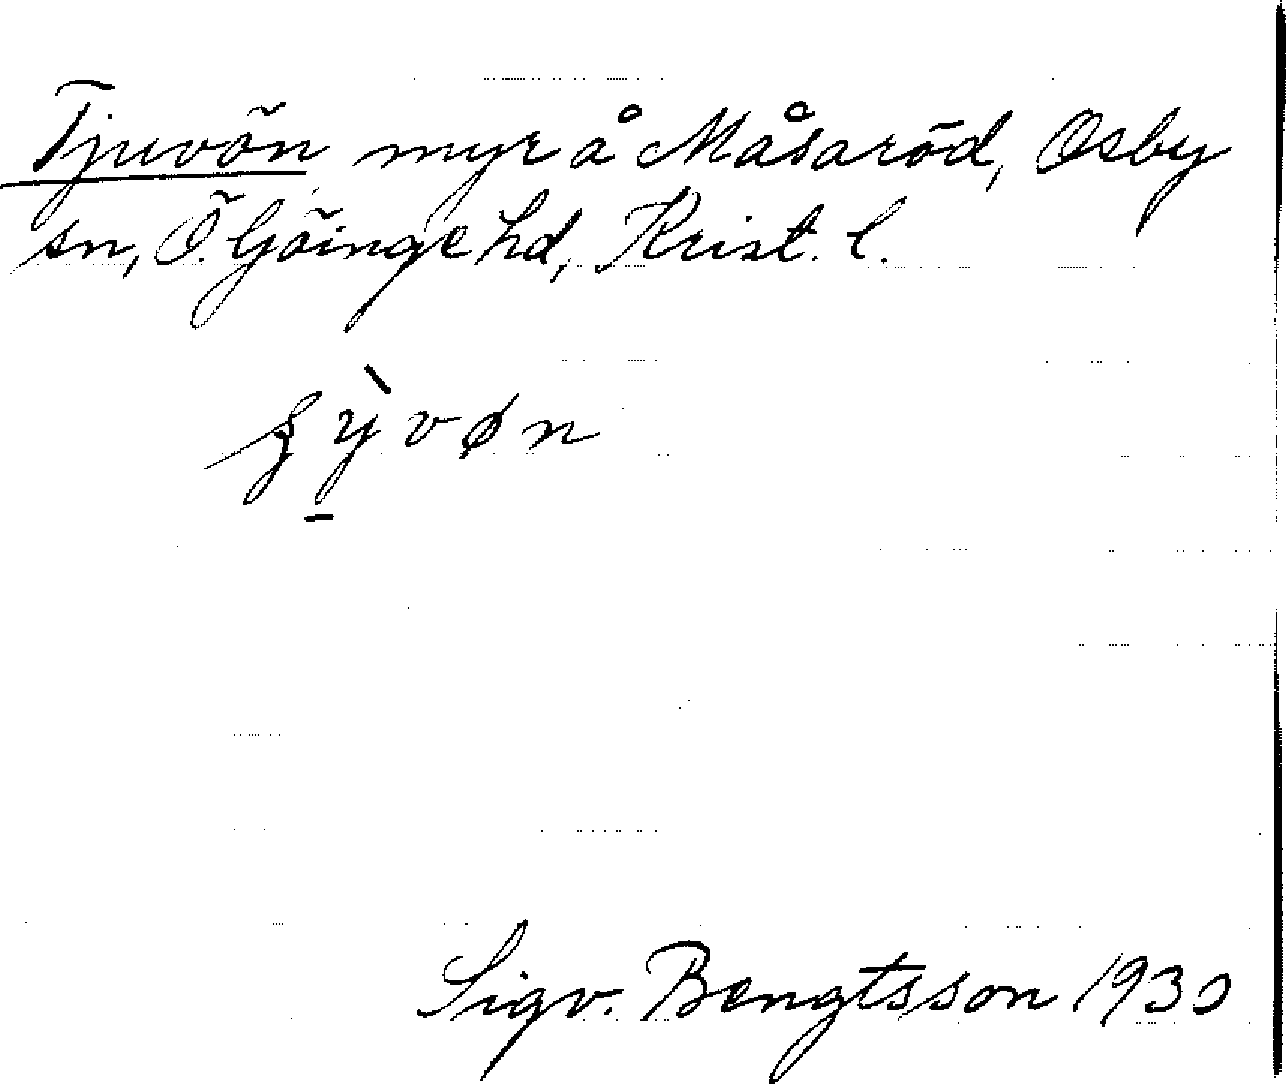 Tjuvön myr å Måsaröd, Osby
sn, Ö. Göinge hd, Krist. l.
vøn
Sigv. Bengtsson 1930